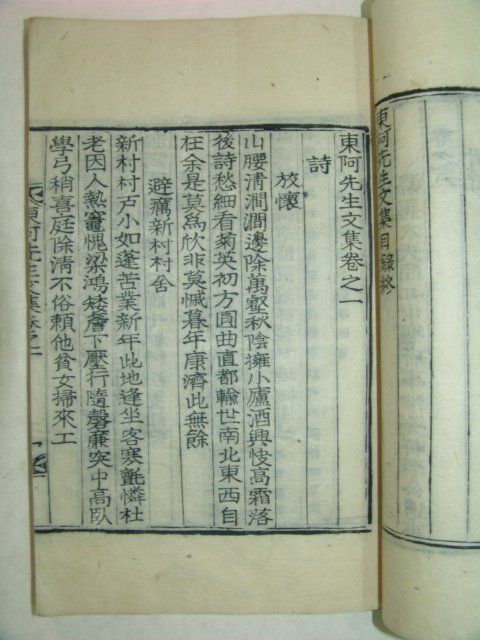 東阿先生文集目錄終
東阿先生文集卷之一
詩
放懷
山腰淸澗澗邊除萬壑秋陰擁小廬酒興悛高霜落
後詩愁細看菊英初方圓曲直都輸世南北東西自
在余是莫爲欣非莫慽暮年康濟此無餘
避癘新村村舍
新村村戶小如蓬苦業新年此地逢坐客寒氈憐杜
老因人熱竈愧梁鴻矮簷下壓行隨磬廉突中高臥
學弓稍喜庭除淸不俗頼他貧女掃來工
東阿先生文集卷之一